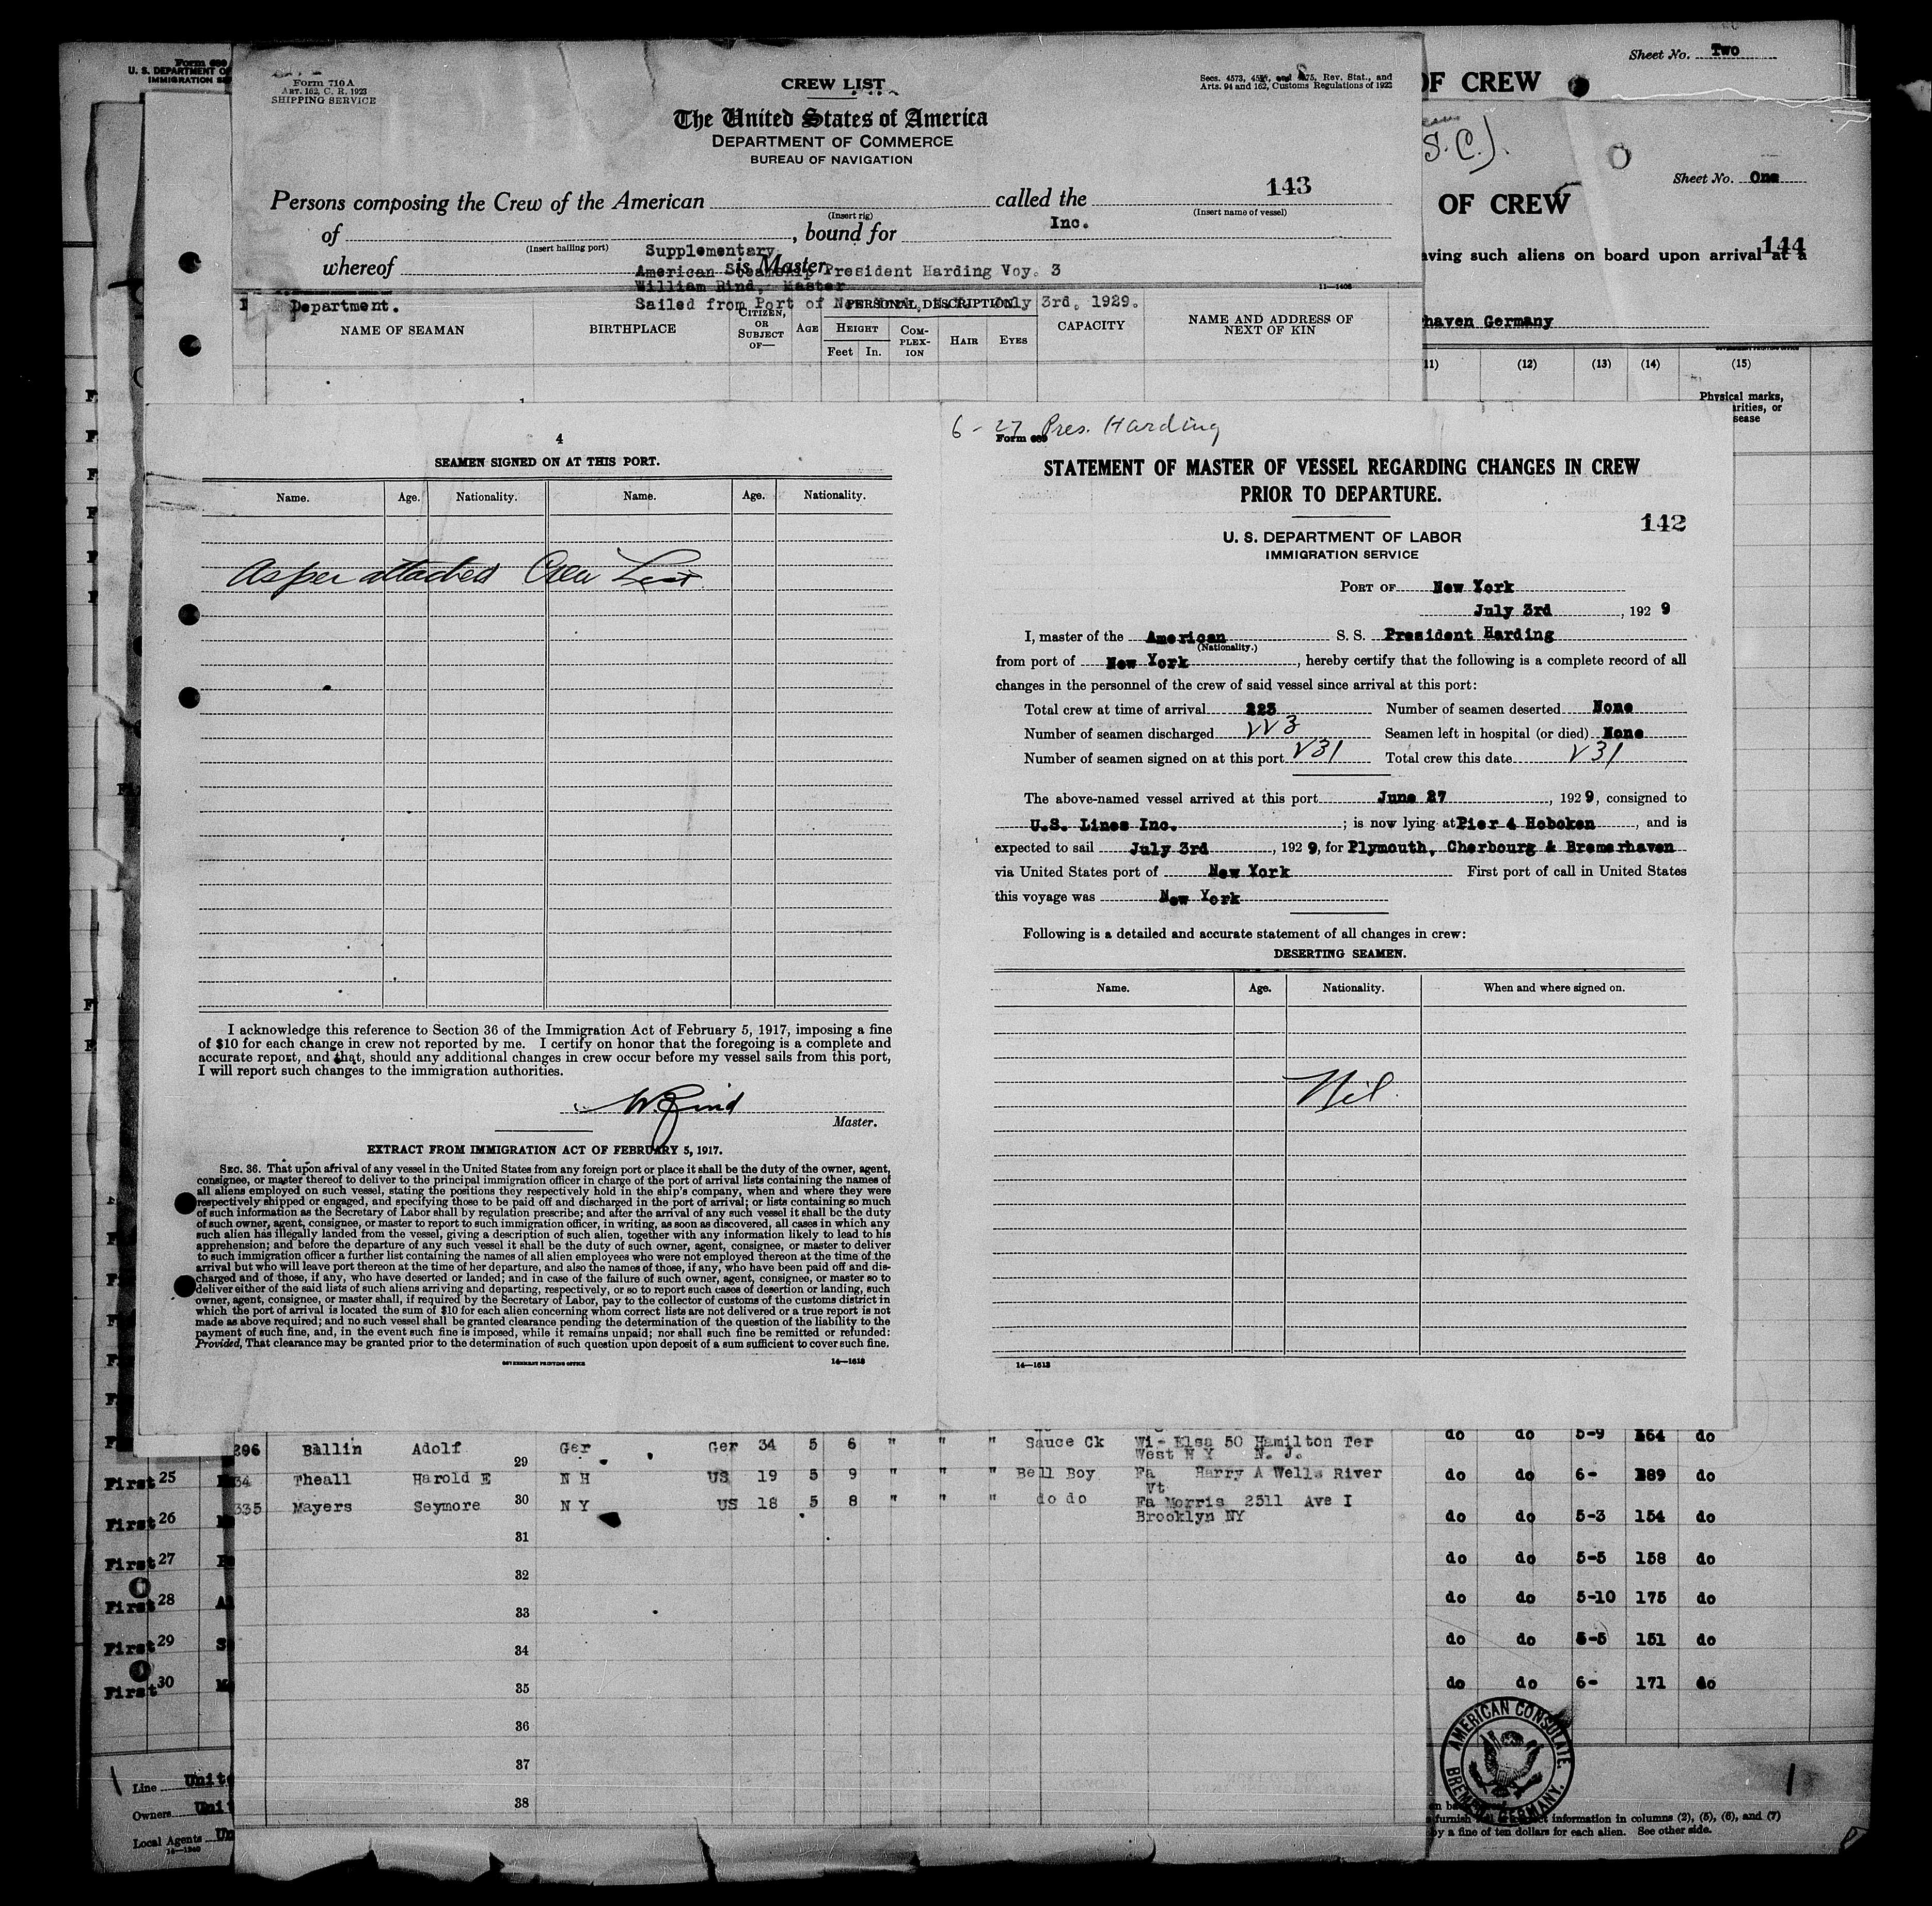 Form 689
U. S. DEPARTMENT OF
IMMIGRATION
Sheet No. Two
OF CREW
S.C.).
Sheet No. One
OF CREW
aving such aliens on board upon arrival at a
144
haven Germany
(11) (12) (13) (14) (15)
Physical marks,
arities, or
sease
Form 710 A
ART. 162, C. R. 1923
SHIPPING SERVICE
CREW LIST
Secs. 4573, 4574, and 4575, Rev. Stat., and
Arts. 94 and 162, Customs Regulations of 1923
The United States of America
DEPARTMENT OF COMMERCE
BUREAU OF NAVIGATION
143
Persons composing the Crew of the American called the
(Insert rig) (Insert name of vessel)
Inc.
of , bound for
(Insert hailing port)
Supplementary
whereof is Master
American Steamship President Harding Voy. 3
William Rind, Master
11—1406
Department. Sailed from Port of New York, July 3rd, 1929.
PERSONAL DESCRIPTION
NAME OF SEAMAN BIRTHPLACE CITIZEN, OR SUBJECT OF— AGE HEIGHT Feet In. COMPLEXION HAIR EYES CAPACITY NAME AND ADDRESS OF NEXT OF KIN
4
SEAMEN SIGNED ON AT THIS PORT.
Name. Age. Nationality. Name. Age. Nationality.
As per attached Crew List
I acknowledge this reference to Section 36 of the Immigration Act of February 5, 1917, imposing a fine
of $10 for each change in crew not reported by me. I certify on honor that the foregoing is a complete and
accurate report, and that, should any additional changes in crew occur before my vessel sails from this port,
I will report such changes to the immigration authorities.
W Rind
Master.
EXTRACT FROM IMMIGRATION ACT OF FEBRUARY 5, 1917.
SEC. 36. That upon arrival of any vessel in the United States from any foreign port or place it shall be the duty of the owner, agent,
consignee, or master thereof to deliver to the principal immigration officer in charge of the port of arrival lists containing the names of
all aliens employed on such vessel, stating the positions they respectively hold in the ship's company, when and where they were
respectively shipped or engaged, and specifying those to be paid off and discharged in the port of arrival; or lists containing so much
of such information as the Secretary of Labor shall by regulation prescribe; and after the arrival of any such vessel it shall be the duty
of such owner, agent, consignee, or master to report to such immigration officer, in writing, as soon as discovered, all cases in which any
such alien has illegally landed from the vessel, giving a description of such alien, together with any information likely to lead to his
apprehension; and before the departure of any such vessel it shall be the duty of such owner, agent, consignee, or master to deliver
to such immigration officer a further list containing the names of all alien employees who were not employed thereon at the time of the
arrival but who will leave port thereon at the time of her departure, and also the names of those, if any, who have been paid off and dis-
charged and of those, if any, who have deserted or landed; and in case of the failure of such owner, agent, consignee, or master so to
deliver either of the said lists of such aliens arriving and departing, respectively, or so to report such cases of desertion or landing, such
owner, agent, consignee, or master shall, if required by the Secretary of Labor, pay to the collector of customs of the customs district in
which the port of arrival is located the sum of $10 for each alien concerning whom correct lists are not delivered or a true report is not
made as above required; and no such vessel shall be granted clearance pending the determination of the question of the liability to the
payment of such fine, and, in the event such fine is imposed, while it remains unpaid; nor shall such fine be remitted or refunded:
Provided, That clearance may be granted prior to the determination of such question upon deposit of a sum sufficient to cover such fine.
GOVERNMENT PRINTING OFFICE 14—1613
6 - 27 Pres. Harding
Form 689
STATEMENT OF MASTER OF VESSEL REGARDING CHANGES IN CREW
PRIOR TO DEPARTURE.
142
U. S. DEPARTMENT OF LABOR
IMMIGRATION SERVICE
PORT OF New York
July 3rd, 1929
I, master of the American S. S. President Harding
(Nationality.)
from port of New York, hereby certify that the following is a complete record of all
changes in the personnel of the crew of said vessel since arrival at this port:
Total crew at time of arrival 223 Number of seamen deserted None
Number of seamen discharged 223 Seamen left in hospital (or died) None
Number of seamen signed on at this port 231 Total crew this date 231
The above-named vessel arrived at this port June 27, 1929, consigned to
U.S. Lines Inc. ; is now lying at Pier 4 Hoboken, and is
expected to sail July 3rd, 1929, for Plymouth, Cherbourg & Bremerhaven
via United States port of New York First port of call in United States
this voyage was New York
Following is a detailed and accurate statement of all changes in crew:
DESERTING SEAMEN.
Name. Age. Nationality. When and where signed on.
Nil
14—1613
296 Ballin Adolf Ger Ger 34 5 6 " " " Sauce Ck Wi- Elsa 50 Hamilton Ter
29 West N Y N. J.
34 Theall Harold E N H US 19 5 9 " " " Bell Boy Fa Harry A Wells River
Vt
335 Mayers Seymore 30 N Y US 18 5 8 " " " do do Fa Morris 2511 Ave I
Brooklyn NY
31
32
33
34
35
36
37
38
First 25
First 26
First 27
First 28
First 29
First 30
do do 5-9 164 do
do do 6- 189 do
do do 5-3 154 do
do do 5-5 158 do
do do 5-10 175 do
do do 5-5 151 do
do do 6- 171 do
AMERICAN CONSULATE.
BREMEN, GERMANY.
Line Unite
Owners Unit
Local Agents Un
14—1240
information in columns (2), (5), (6), and (7)
by a fine of ten dollars for each alien. See other side.